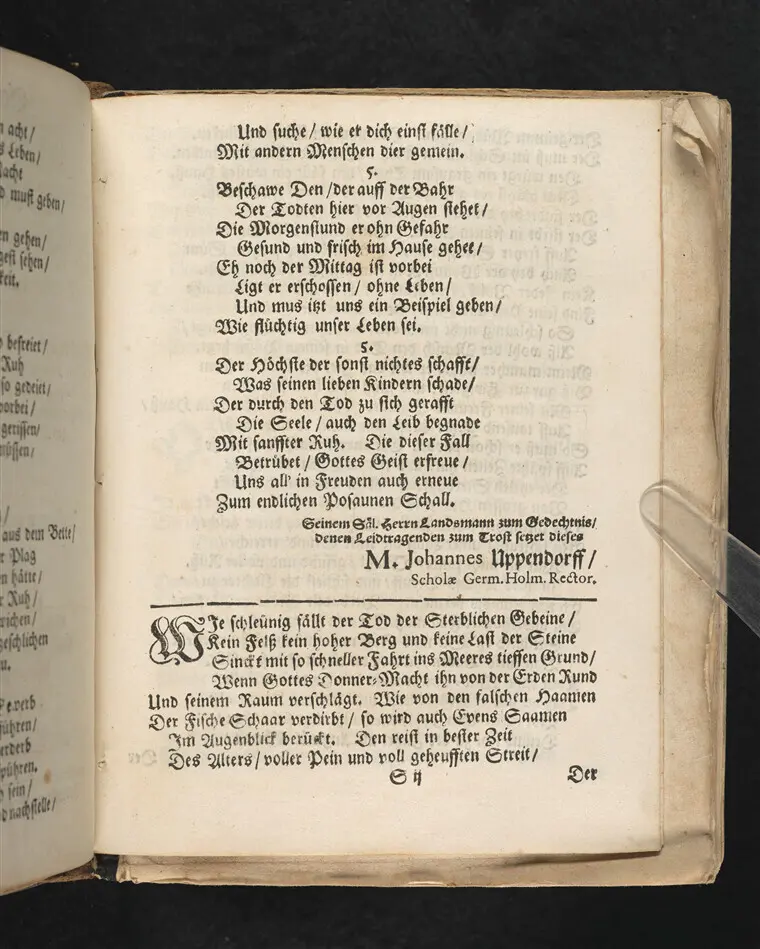 n acht/
s Leben/
acht
d must geben/
n gehen/
gest sehen/
keit.
befreiet/
Ruh
so gedeiet/
vorbei/
gerissen/
müssen/
aus dem Bette/
r Plag
n hätte/
r Ruh/
richen/
geschlichen
u.
verb
führen/
erderb
spühren.
sein/
d nachstelle/
Und suche/ wie er dich einst fälle/
Mit andern Menschen dier gemein.
5.
Beschawe Den/der auff der Bahr
Der Todten hier vor Augen stehet/
Die Morgenstund er ohn Gefahr
Gesund und frisch im Hause gehet/
Eh noch der Mittag ist vorbei
Ligt er erschossen/ ohne Leben/
Und mus itzt uns ein Beispiel geben/
Wie flüchtig unser Leben sei.
5.
Der Höchste der sonst nichtes schafft/
Was seinen lieben Kindern schade/
Der durch den Tod zu sich gerafft
Die Seele/ auch den Leib begnade
Mit sanffter Ruh. Die dieser Fall
Betrübet/ Gottes Geist erfreue/
Uns all' in Freuden auch erneue
Zum endlichen Posaunen Schall.
Seinem Säl. Herrn Landsmann zum Gedechtnis/
denen Leidtragenden zum Trost setzet dieses
M. Johannes Uppendorff/
Scholæ Germ. Holm. Rector.
WJe schleünig fällt der Tod der Sterblichen Gebeine/
Kein Felß kein hoher Berg und keine Last der Steine
Sinckt mit so schneller Fahrt ins Meeres tieffen Grund/
Wenn Gottes Donner-Macht ihn von der Erden Rund
Und seinem Raum verschlägt. Wie von den falschen Haamen
Der Fische Schaar verdirbt/ so wird auch Evens Saamen
Jm Augenblick berückt. Den reist in bester Zeit
Des Alters/ voller Pein und voll geheufften Streit/
S ij
Der